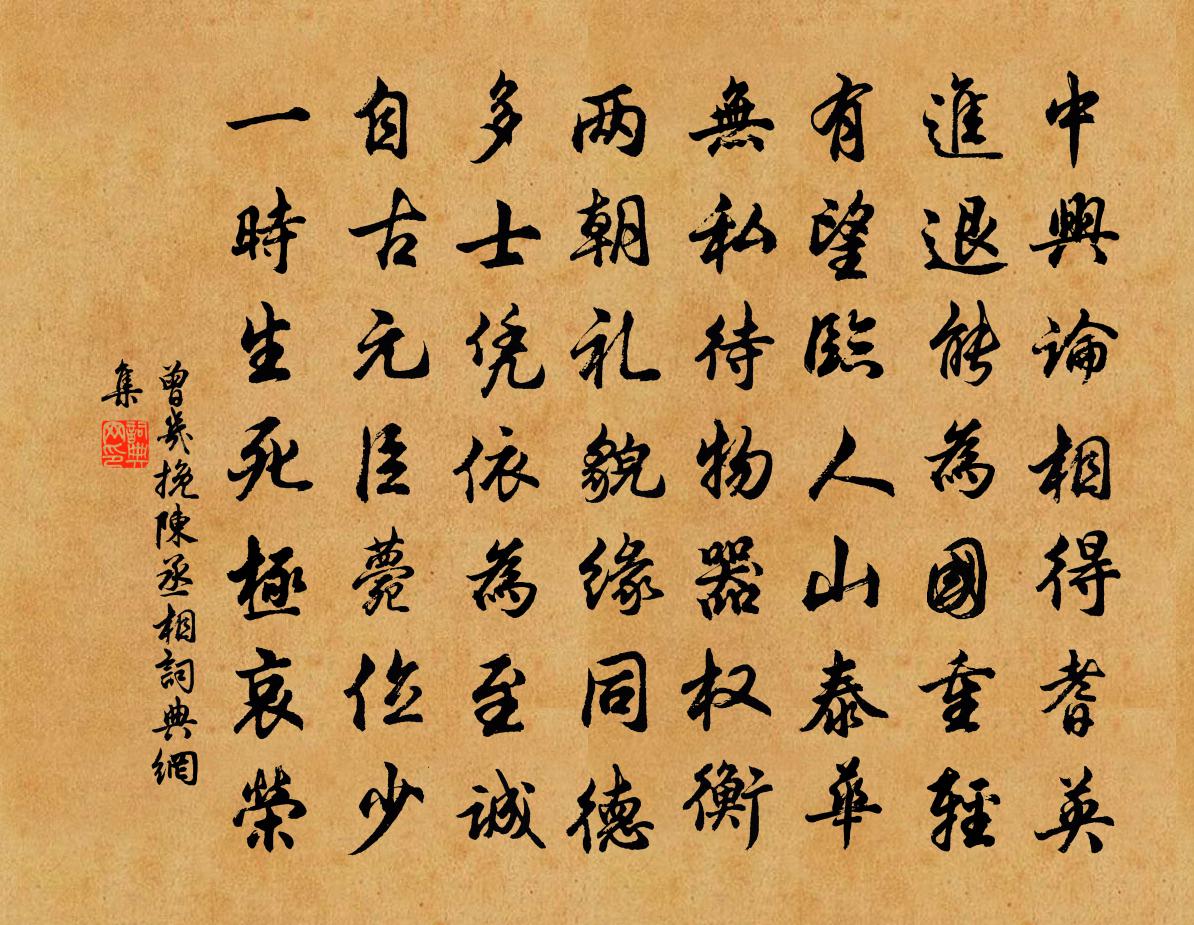 中興論相得耆英
進退能為國重輕
有望臨人山泰華
無私待物器权衡
两朝礼貌緣同德
多士凭依為至誠
自古元臣薨位少
一時生死極哀榮
曾幾挽陳丞相詞典網
集
詞典
网印